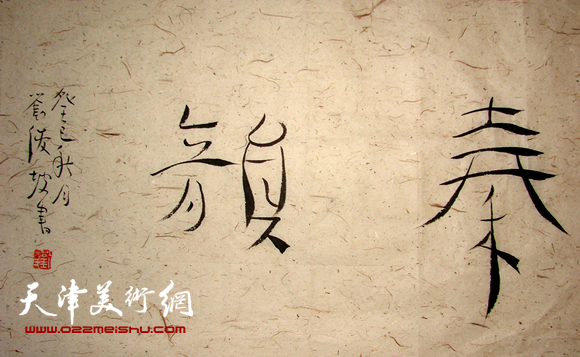 秦韻
癸巳秋月
陵坡書
天津美術網
www.022meishu.com